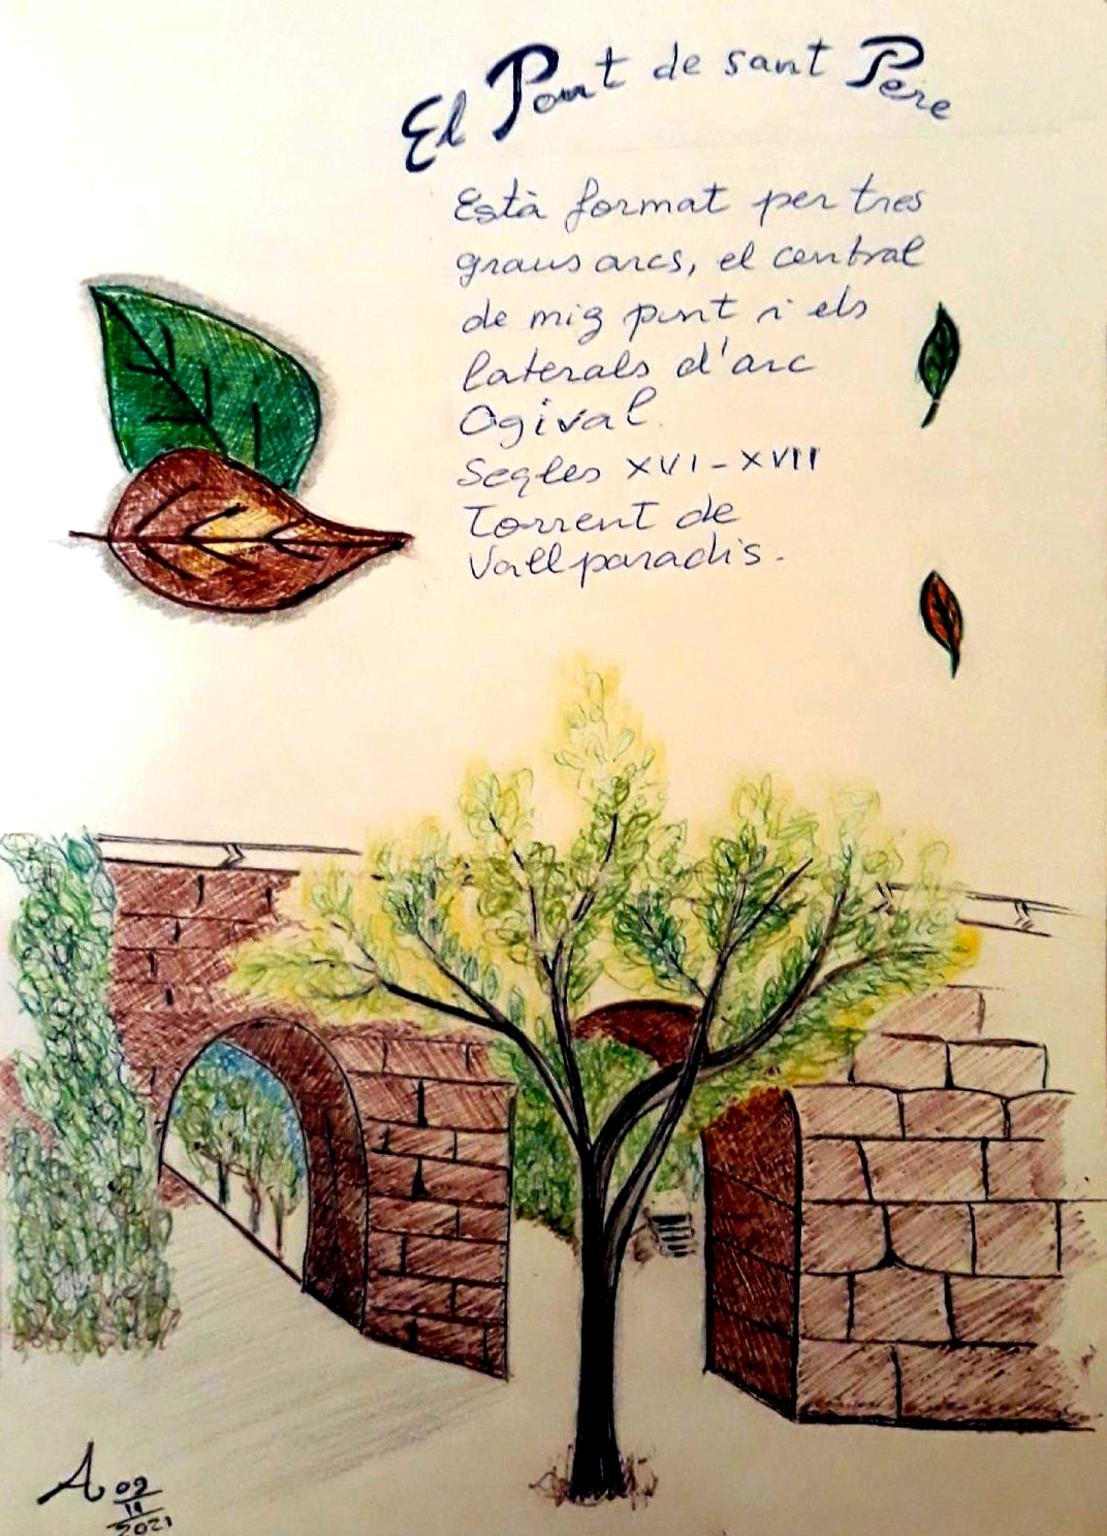 El Pont de sant Pere
Està format per tres
graus arcs, el central
de mig punt i els
laterals d'arc
Ogival.
Segles XVI-XVII
Torrent de
Vallparadís.
A 02
11
2021